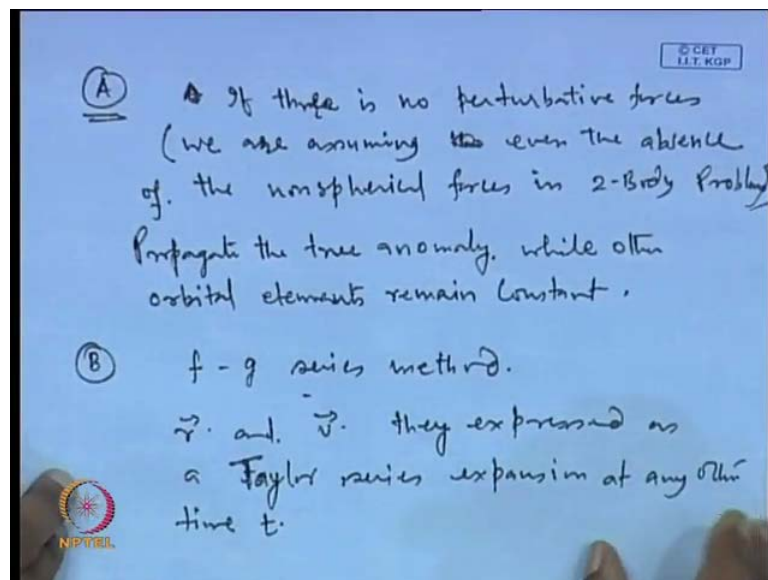 © CET
I.I.T. KGP
A If there is no perturbative forces
(we are assuming even the absence
of. the nonspherical forces in 2-Body Problem)
Propagate the true anomaly. while other
orbital elements remain constant.
B f - g series method.
r⃗. and. v⃗. they expressed as
a Taylor series expansion at any other
time t.
NPTEL